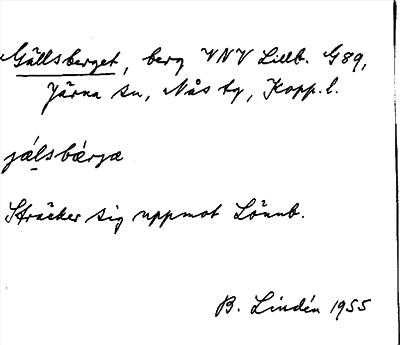 Gällsberget, berg VNV Lillb. G 89,
Järna sn, Nås tg, Kopp.l.
jä́lsbä́rjæ
Sträcker sig uppmot Lönnb.
B. Lindén 1955